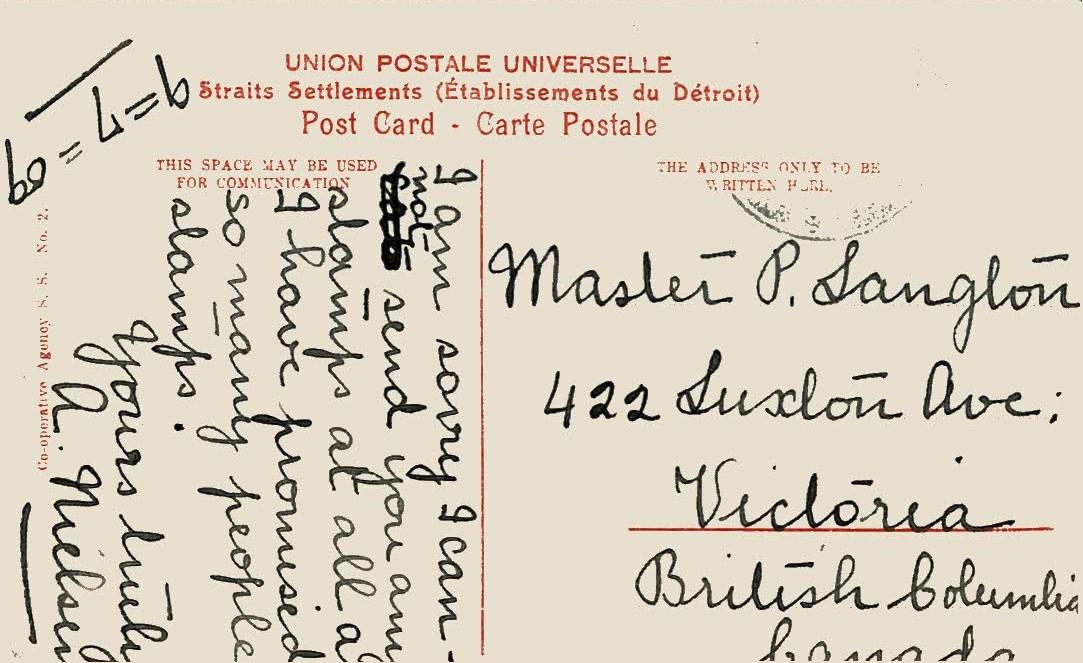 UNION POSTALE UNIVERSELLE
Straits Settlements (Établissements du Détroit)
Post Card - Carte Postale
THIS SPACE MAY BE USED
FOR COMMUNICATION
THE ADDRESS ONLY TO BE
WRITTEN HERE.
9=7=09
I am sorry I can-
not send you any
stamps at all as
I have promised
so many people
stamps.
Yours truly
A. Nielsen
Master P. Langton
422 Luxton Ave;
Victoria
British Columbia
Canada
Co-operative Agency S. S. No. 2.